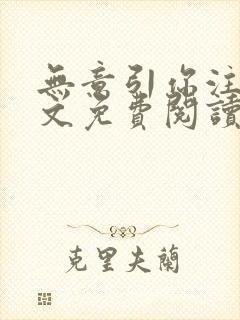 無意引你注
文免費閱讀
克里夫蘭